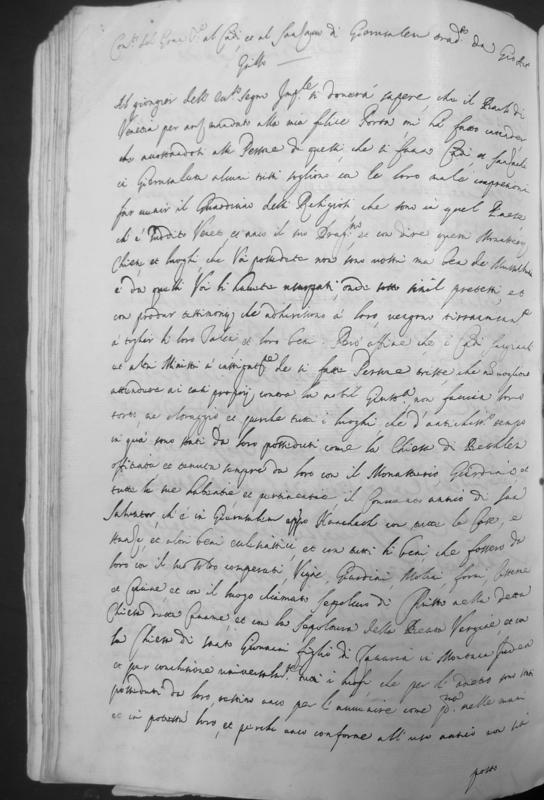 al Cadì, et al Sangiaco di Gierusalem trad.ta da
Al giongier dell' ecc.so segno Imp.le ti doverà sapere, che il Bailo di
Venetia per mandato alla mia felice Porta mi hà fatto intender
che accostandosi alle Persone di quelli, che si fanno Cadì et Sangiachi
in Gierusalem alcuni tristi sogliono con le loro male
far venir il Guardiano delli Religiosi che sono in quel Paese
ch' è Veneto, et anco il suo Drag.no, et con dire questi Monasterij
Chiese, et luoghi che Voi possedete non sono vostri ma ben de Musulmani
e da quelli Voi li havete usurpati, onde sotto simil pretesti, et
con produr testimonij che adheriscono à loro, vengono
à toglier li loro danari et loro beni: Però affine che i Cadì, Sangiachi
et altri Ministri à di si fatte Persone triste, che non vogliono
attendere ai casi proprij contra la nobil Giust.a non faccin loro
torto, ne oltraggio et perche tutti i luoghi che d' antichiss.o tempo
in quà sono stati da loro posseduti come la Chiesa di Bethlem
officiata et tenuta sempre da loro con il Monasterio Giardini et
tutte le sue habentie et pertinentie, il Convento antico di San
Salvator ch' è in Gierusalem con tutte le Case, e
stanze et altri beni et con tutti li beni, che fossero da
loro con il suo comperati, Vigne, Giardini, Molini, forni, Cisterne
et et con il luogo chiamato Sepolcro di Christo nella detta
Chiesa detta Camame et con la Sepoltura della Beata Vergine, et con
la Chiesa di Santo Giovanni figlio di Zaccaria in Montana Giudea
et per conclusione universalm.te tutti i luoghi che per l' adietro sono stati
posseduti da loro, restino anco per l' avvenire come p.ma nelle mani
et in potestà loro, et perche anco conforme all' uso antico non sia
posto